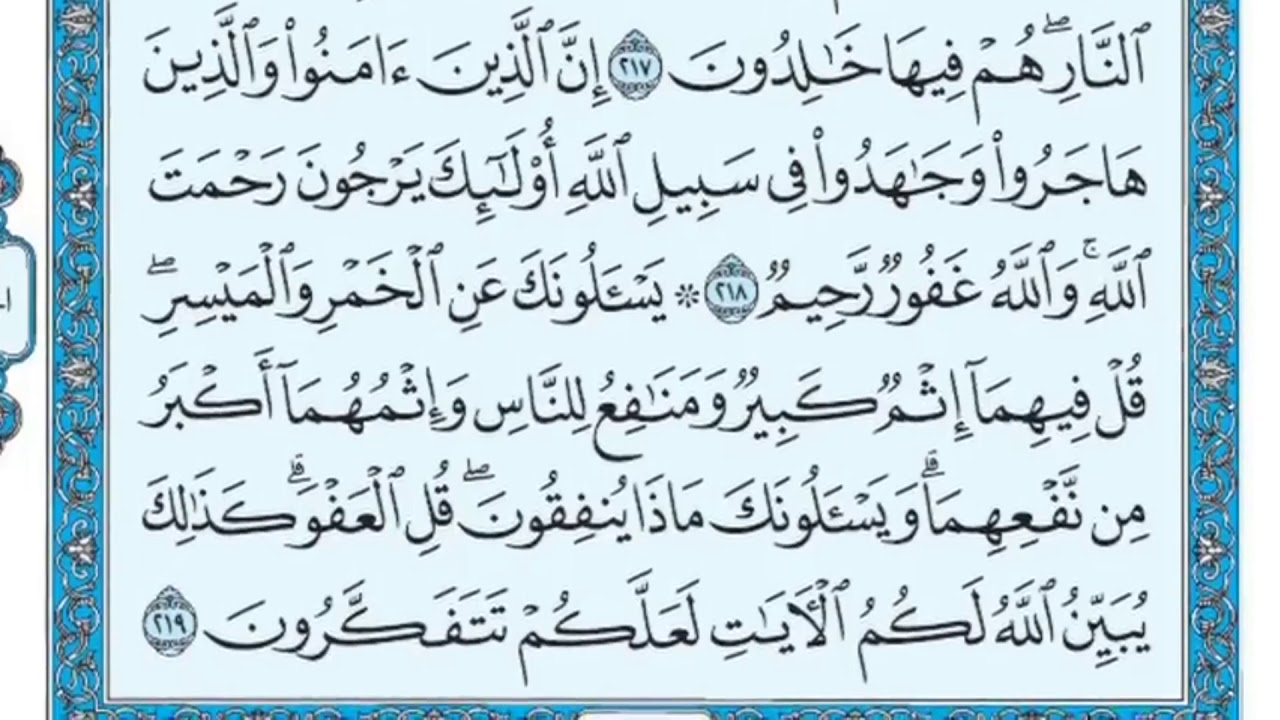 ٱلنَّارِۖ هُمۡ فِيهَا خَٰلِدُونَ ٢١٧ إِنَّ ٱلَّذِينَ ءَامَنُواْ وَٱلَّذِينَ
هَاجَرُواْ وَجَٰهَدُواْ فِي سَبِيلِ ٱللَّهِ أُوْلَٰٓئِكَ يَرۡجُونَ رَحۡمَتَ
ٱللَّهِۚ وَٱللَّهُ غَفُورٞ رَّحِيمٞ ٢١٨ ۞ يَسۡـَٔلُونَكَ عَنِ ٱلۡخَمۡرِ وَٱلۡمَيۡسِرِۖ
قُلۡ فِيهِمَآ إِثۡمٞ كَبِيرٞ وَمَنَٰفِعُ لِلنَّاسِ وَإِثۡمُهُمَآ أَكۡبَرُ
مِن نَّفۡعِهِمَاۗ وَيَسۡـَٔلُونَكَ مَاذَا يُنفِقُونَۖ قُلِ ٱلۡعَفۡوَۗ كَذَٰلِكَ
يُبَيِّنُ ٱللَّهُ لَكُمُ ٱلۡأٓيَٰتِ لَعَلَّكُمۡ تَتَفَكَّرُونَ ٢١٩